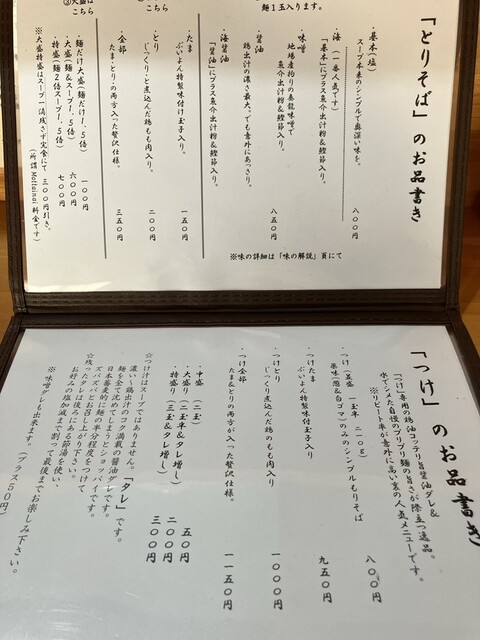 「とりそば」のお品書き
・基本(塩)
スープ本来のシンプルで奥深い味を。
八〇〇円
・海(一番人気です)
「基本」にプラス魚介出汁粉&鰹節入り。
・味噌
地場産拘りの奏龍味噌で
魚介出汁粉&鰹節入り。
八五〇円
・醤油
鶏出汁の濃さ最大。でも意外にあっさり。
・海醤油
「醤油」にプラス魚介出汁粉&鰹節入り。
※味の詳細は「味の解説」頁にて
・たま
ぷいよん特製味付け玉子入り。
一五〇円
・とり
じっくりと煮込んだ鶏もも肉入り。
二〇〇円
・全部
たま&とりの両方入った贅沢仕様。
三五〇円
麺1玉入ります。
こちら
③大盛は
こちら
・麺だけ大盛(麺だけ1.5倍)
一〇〇円
・大盛(麺&スープ1.5倍)
六〇〇円
・特盛(麺2倍スープ1.5倍)
七〇〇円
※大盛特盛はスープ一滴残さず完食にて三〇〇円引き。
(所謂Mottainai料金です)
「つけ」のお品書き
「つけ」専用の鶏油コッテリ旨醤油ダレ&
水でシメた自慢のプリプリ麺の旨さが際立つ逸品。
※リピート率が意外に高い裏の人気メニューです。
・つけ(並盛 一玉半 二一〇g)
薬味(葱&白ゴマ)のみのシンプルもりそば
八〇〇円
・つけたま
ぷいよん特製味付け玉子入り
九五〇円
・つけとり
じっくり煮込んだ鶏のもも肉入り
一〇〇〇円
・つけ全部
たま&とりの両方が入った贅沢仕様。
一一五〇円
・中盛 (二玉)
五〇円
・大盛り (二玉半&タレ増し)
二〇〇円
・特盛り (三玉&タレ増し)
三〇〇円
☆つけ汁はスープではありません。「タレ」です。
濃い〜鶏出汁のコク満載の醤油ダレです。
麺を全て沈めてしまうとショッパイです。
日本蕎麦的に麺の半分程度をつけて
ズバズバとお召し上がり下さい。
☆残ったタレは後ろにある節湯を使い、
お好みの塩加減まで割って最後までお楽しみ下さい。
※味噌ダレも出来ます。(プラス50円)